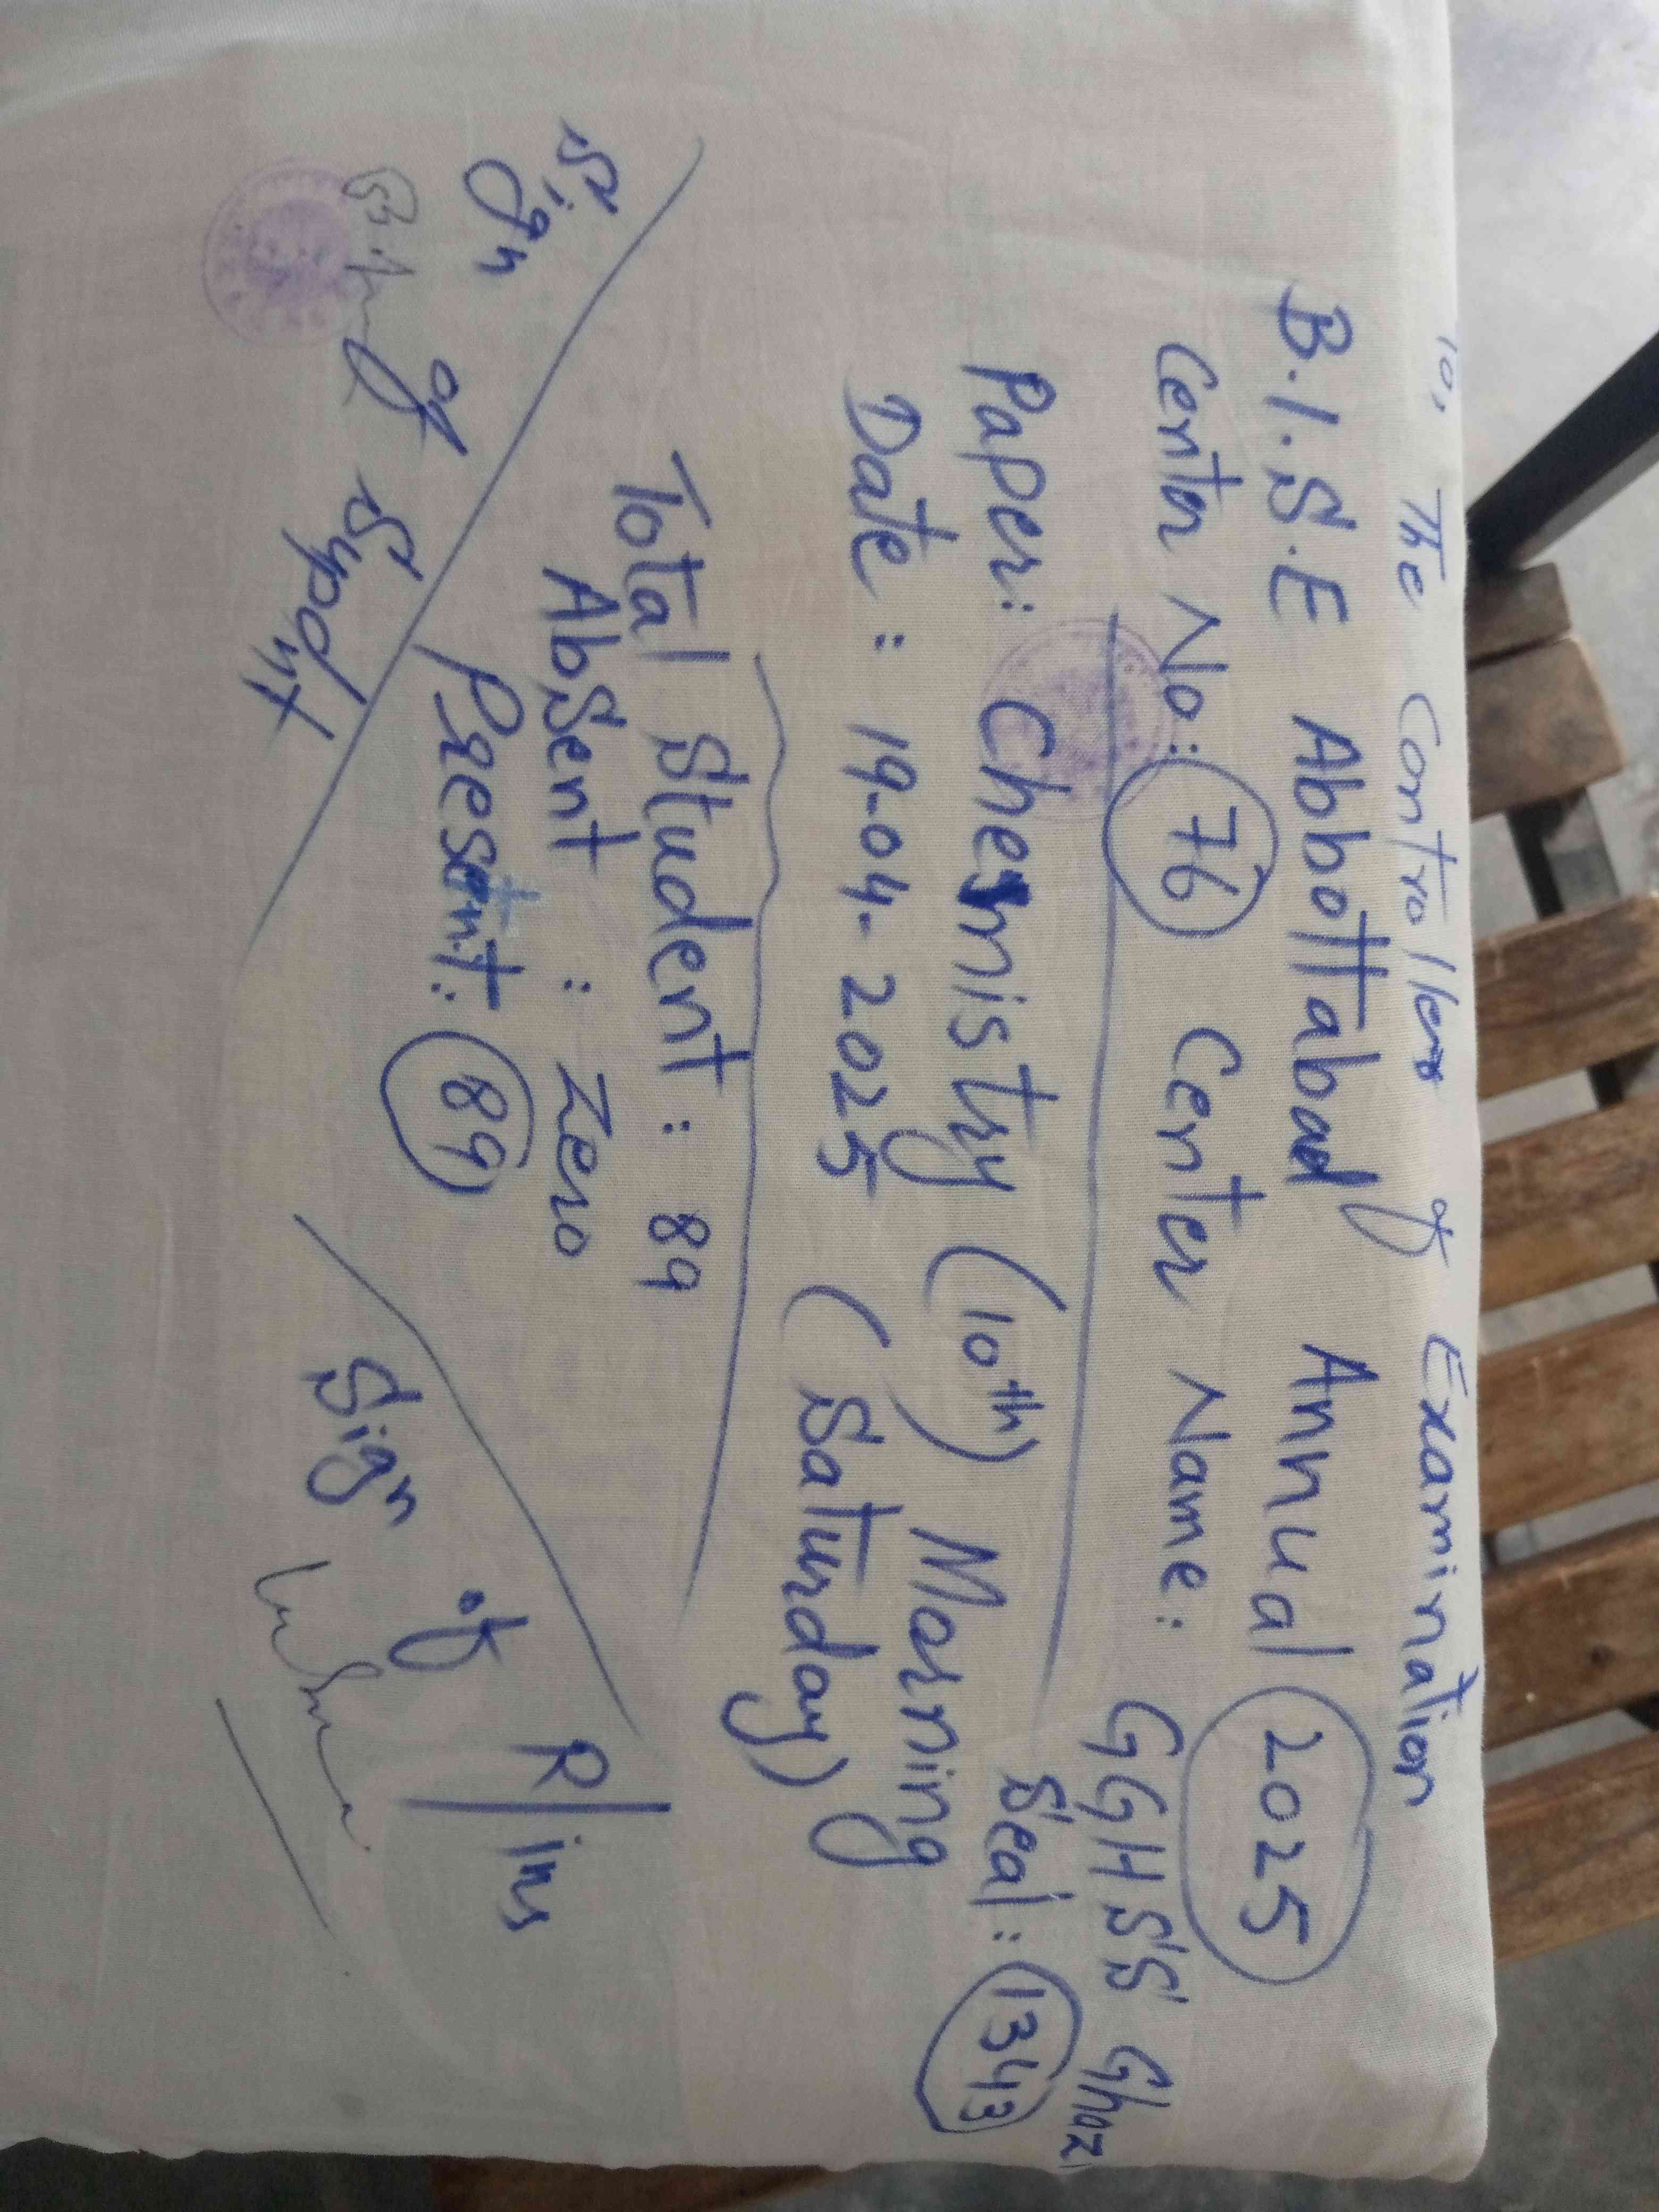 To, The Controller of Examination
B.I.S.E Abbottabad Annual 2025
Center No: 76 Center Name: GGHSS Ghazi
Seal: 13413
Paper: Chemistry (10th) Morning
Date: 19-04-2025 (Saturday)
Total Student: 89
Absent: Zero
Present: 89
Sign of Supdnt
Sign of R/ins